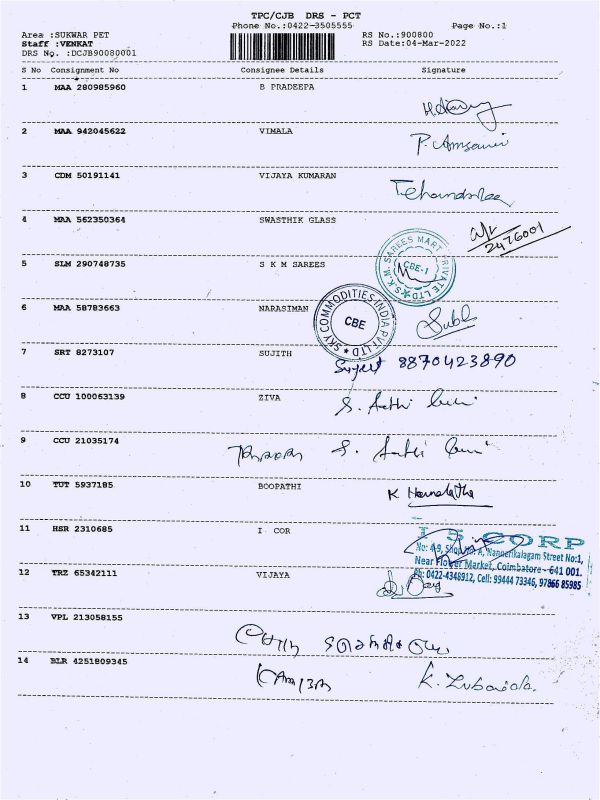 TPC/CJB DRS - PCT
Phone No.:0422-3505555 Page No.:1
Area :SUKWAR PET RS No.:900800
Staff :VENKAT RS Date:04-Mar-2022
DRS No. :DCJB90080001
S No Consignment No Consignee Details Signature
1 MAA 280985960 B PRADEEPA
2 MAA 942045622 VIMALA
P. Amsaveni
3 CDM 50191141 VIJAYA KUMARAN
4 MAA 562350364 SWASTHIK GLASS
2476001
5 SLM 290748735 S K M SAREES
S.K.M. SAREES MART PRIVATE LTD
CBE-1
6 MAA 58783663 NARASIMAN
SKY COMMODITIES INDIA PVT LTD
CBE
7 SRT 8273107 SUJITH
8870423890
8 CCU 100063139 ZIVA
9 CCU 21035174
10 TUT 5937185 BOOPATHI
K Hemalatha
11 HSR 2310685 I COR
I S CORP
Near Flower Market, Coimbatore - 641 001.
Ph: 0422-4348912, Cell: 99444 73346, 97866 85985
12 TRZ 65342111 VIJAYA
13 VPL 213058155
14 BLR 4251809345
K. Zubaida.